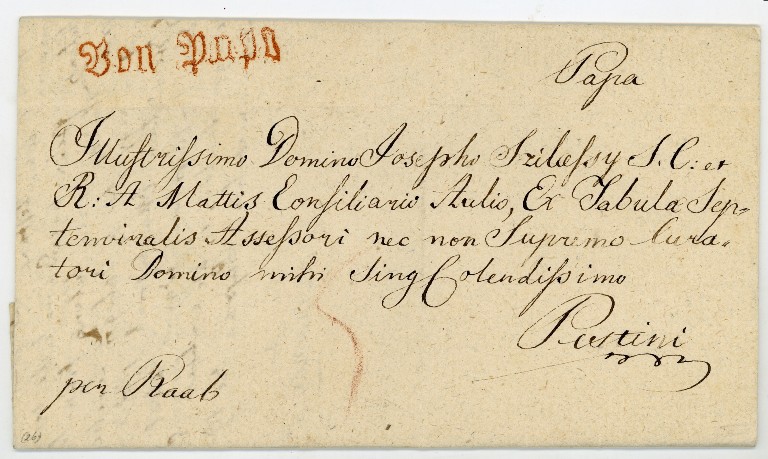 Von Papa
Papa
Illustrissimo Domino Josepho Szilassy S. C: et
R: A Mattis Consiliario Aulio, Ex Tabula Sep-
temviralis Assessori nec non Supremo Cura-
tori Domino mihi Sing Colendissimo
Pestini
per Raab
(26)